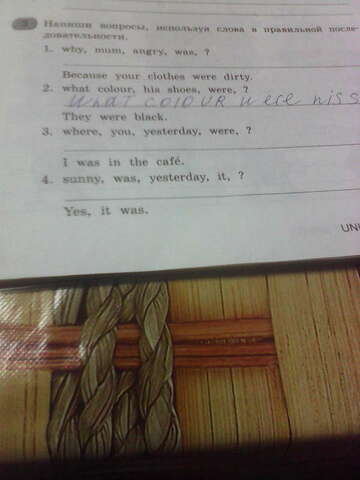 3 Напиши вопросы, используя слова в правильной после-
довательности.
1. why, mum, angry, was, ?
Because your clothes were dirty.
2. what colour, his shoes, were, ?
What colour were his s
They were black.
3. where, you, yesterday, were, ?
I was in the café.
4. sunny, was, yesterday, it, ?
Yes, it was.
UNI